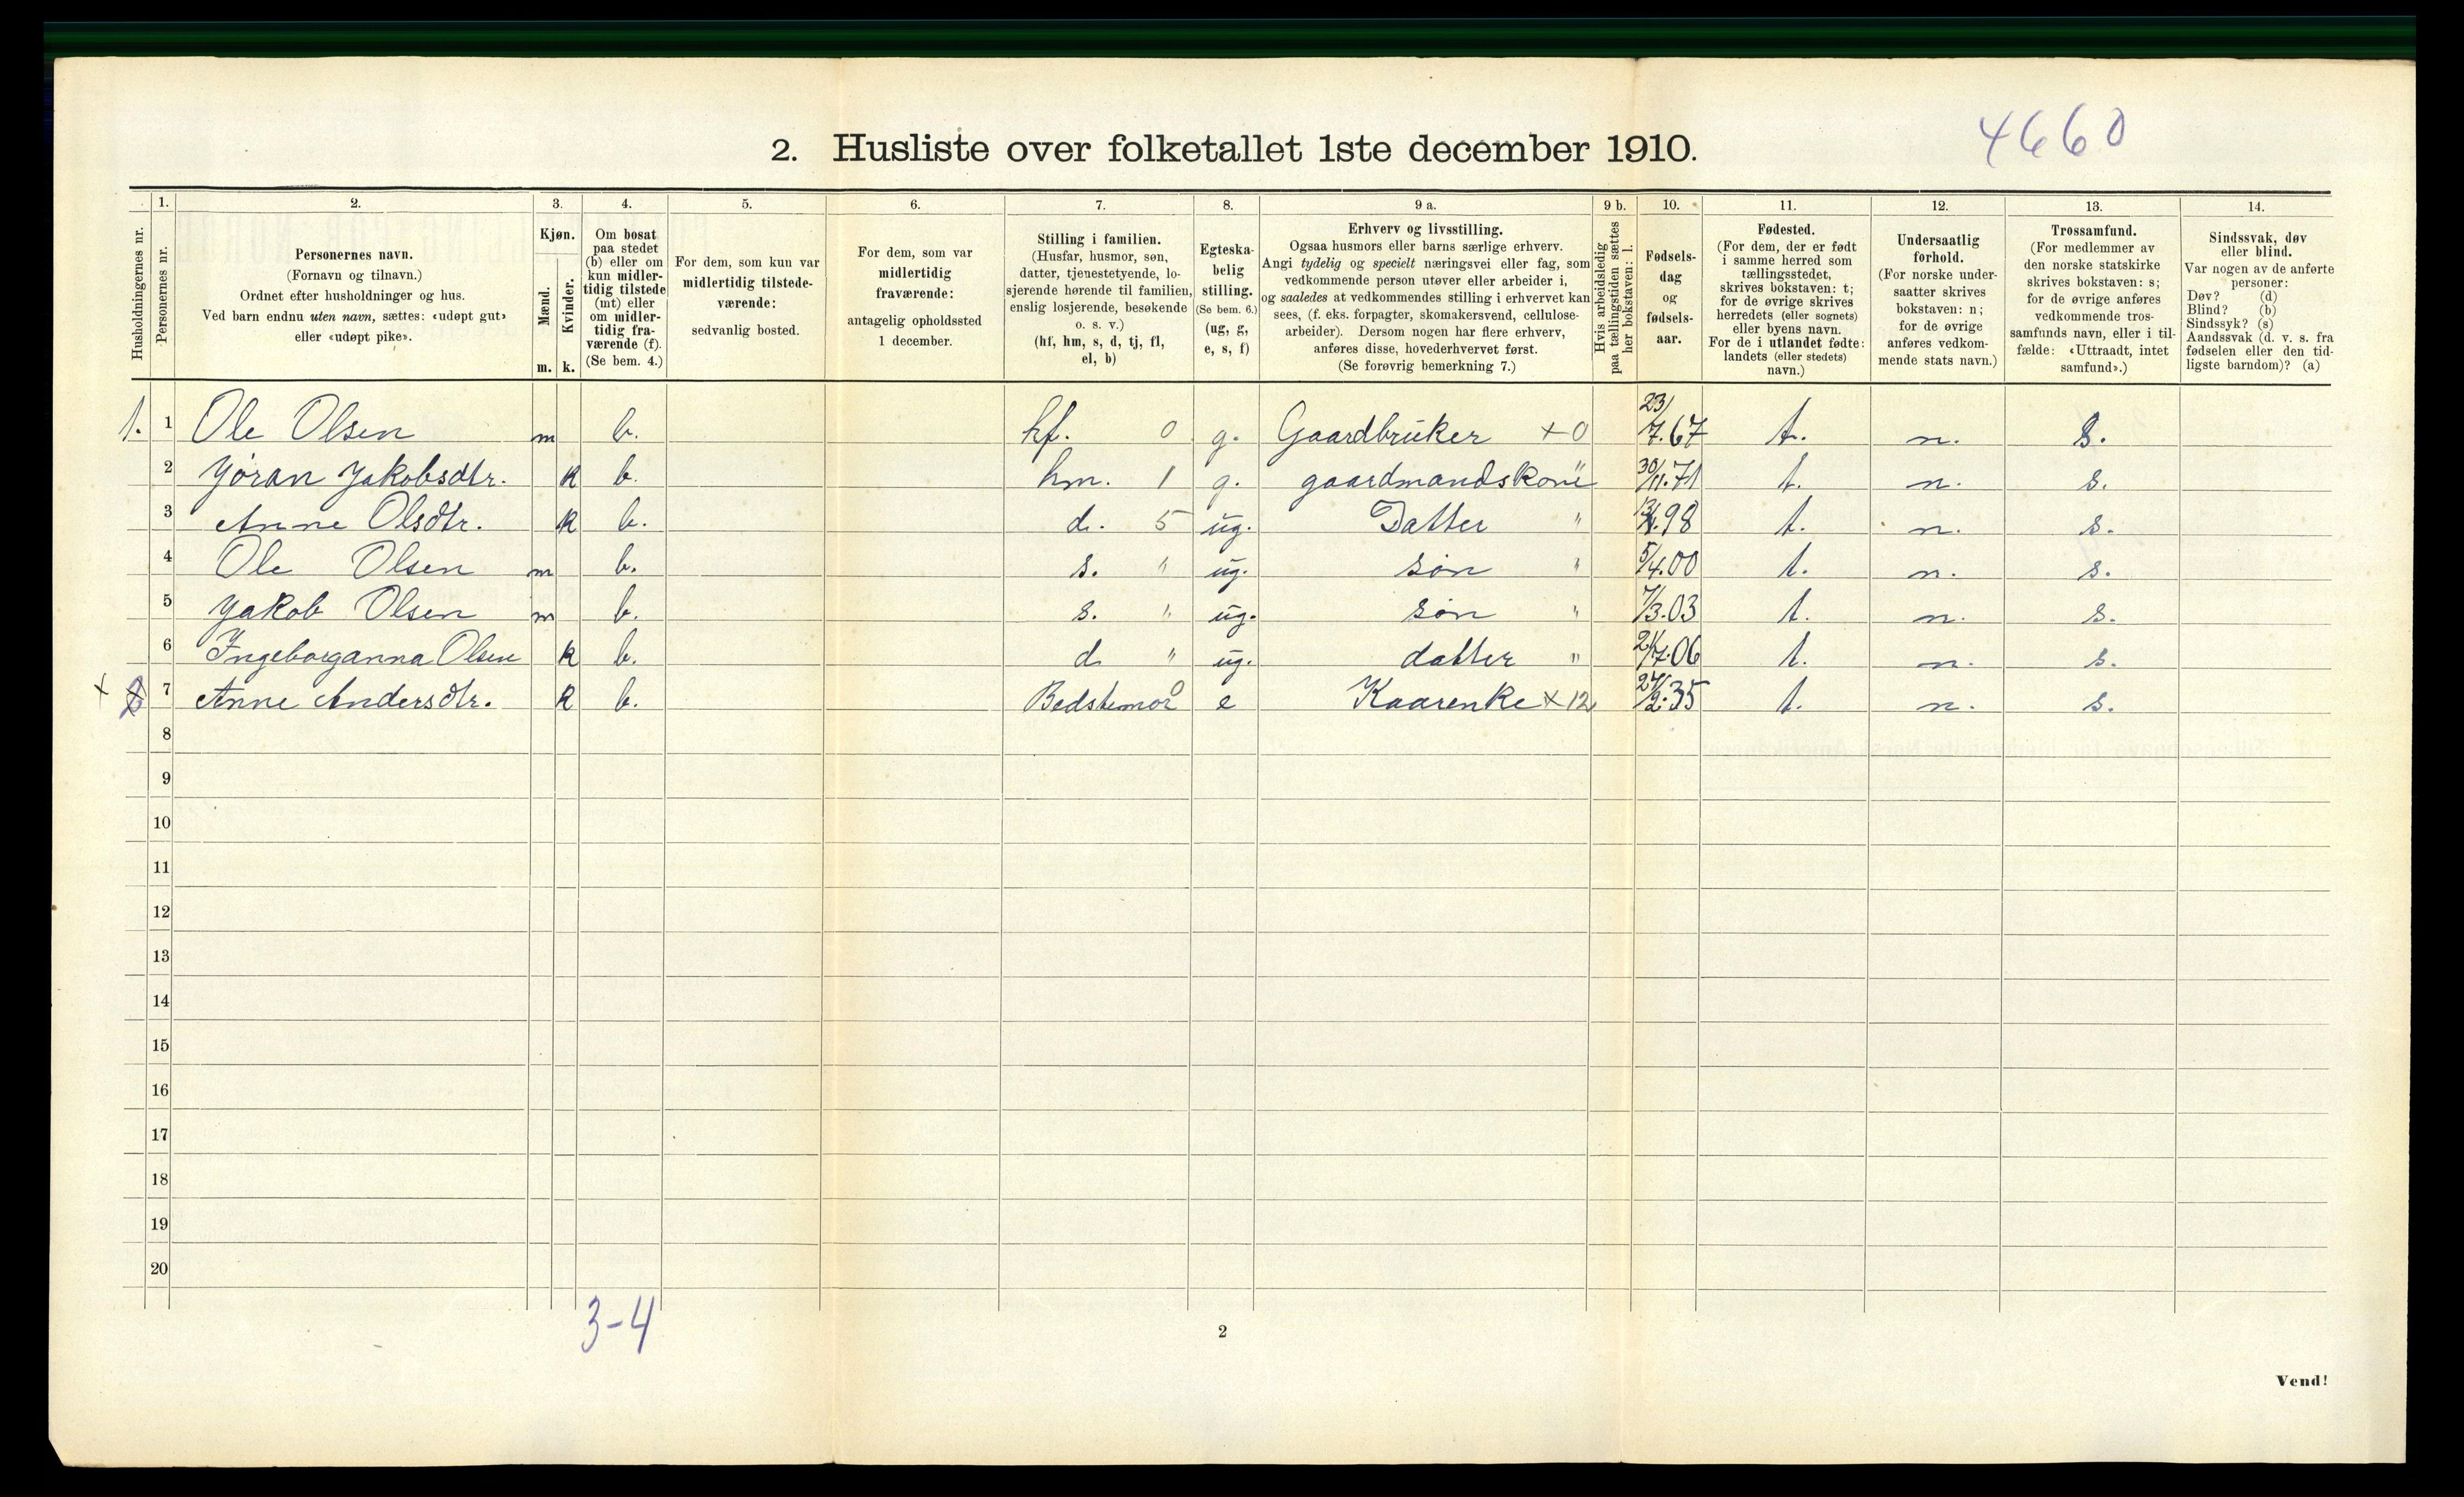 4660
2. Husliste over folketallet 1ste december 1910.
Husholdningernes nr.
1. Personernes nr.
2. Personernes navn.
(Fornavn og tilnavn.)
Ordnet efter husholdninger og hus.
Ved barn endnu uten navn, sættes: «udøpt gut»
eller «udøpt pike».
3. Kjøn.
Mænd. m.
Kvinder. k.
4. Om bosat
paa stedet
(b) eller om
kun midler-
tidig tilstede
(mt) eller
om midler-
tidig fra-
værende (f).
(Se bem. 4.)
5. For dem, som kun var
midlertidig tilstede-
værende:
sedvanlig bosted.
6. For dem, som var
midlertidig
fraværende:
antagelig opholdssted
1 december.
7. Stilling i familien.
(Husfar, husmor, søn,
datter, tjenestetyende, lo-
sjerende hørende til familien,
enslig losjerende, besøkende
o. s. v.)
(hf, hm, s, d, tj, fl,
el, b)
8. Egteska-
belig
stilling.
(Se bem. 6.)
(ug, g,
e, s, f)
9 a. Erhverv og livsstilling.
Ogsaa husmors eller barns særlige erhverv.
Angi tydelig og specielt næringsvei eller fag, som
vedkommende person utøver eller arbeider i,
og saaledes at vedkommendes stilling i erhvervet kan
sees, (f. eks. forpagter, skomakersvend, cellulose-
arbeider). Dersom nogen har flere erhverv,
anføres disse, hovederhvervet først.
(Se forøvrig bemerkning 7.)
9 b. Hvis arbeidsledig
paa tællingstiden sættes
her bokstaven: l.
10. Fødsels-
dag
og
fødsels-
aar.
11. Fødested.
(For dem, der er født
i samme herred som
tællingsstedet,
skrives bokstaven: t;
for de øvrige skrives
herredets (eller sognets)
eller byens navn.
For de i utlandet fødte:
landets (eller stedets)
navn.)
12. Undersaatlig
forhold.
(For norske under-
saatter skrives
bokstaven: n;
for de øvrige
anføres vedkom-
mende stats navn.)
13. Trossamfund.
(For medlemmer av
den norske statskirke
skrives bokstaven: s;
for de øvrige anføres
vedkommende tros-
samfunds navn, eller i til-
fælde: «Uttraadt, intet
samfund».)
14. Sindssvak, døv
eller blind.
Var nogen av de anførte
personer:
Døv? (d)
Blind? (b)
Sindssyk? (s)
Aandssvak (d. v. s. fra
fødselen eller den tid-
ligste barndom)? (a)
1. 1 Ole Olsen m b. hf. 0 g. Gaardbruker +0 23/7.67 t. n. s.
2 Jøran Jakobsdtr. k b. hm. 1 g. gaardmandskone " 30/11.71 t. n. s.
3 Anne Olsdtr. k b. d. 5 ug. Datter " 98 t. n. s.
4 Ole Olsen m b. s. " ug. søn " 5/4.00 t. n. s.
5 Jakob Olsen m b. s. " ug. søn " 7/3.03 t. n. s.
6 Ingeborganna Olsen k b. d " ug. datter " 06 t. n. s.
x 7 Anne Andersdtr. k b. Bedstemor 0 e Kaarenke x 12 35 t. n. s.
8
9
10
11
12
13
14
15
16
17
18
19
20
3-4
2
Vend!